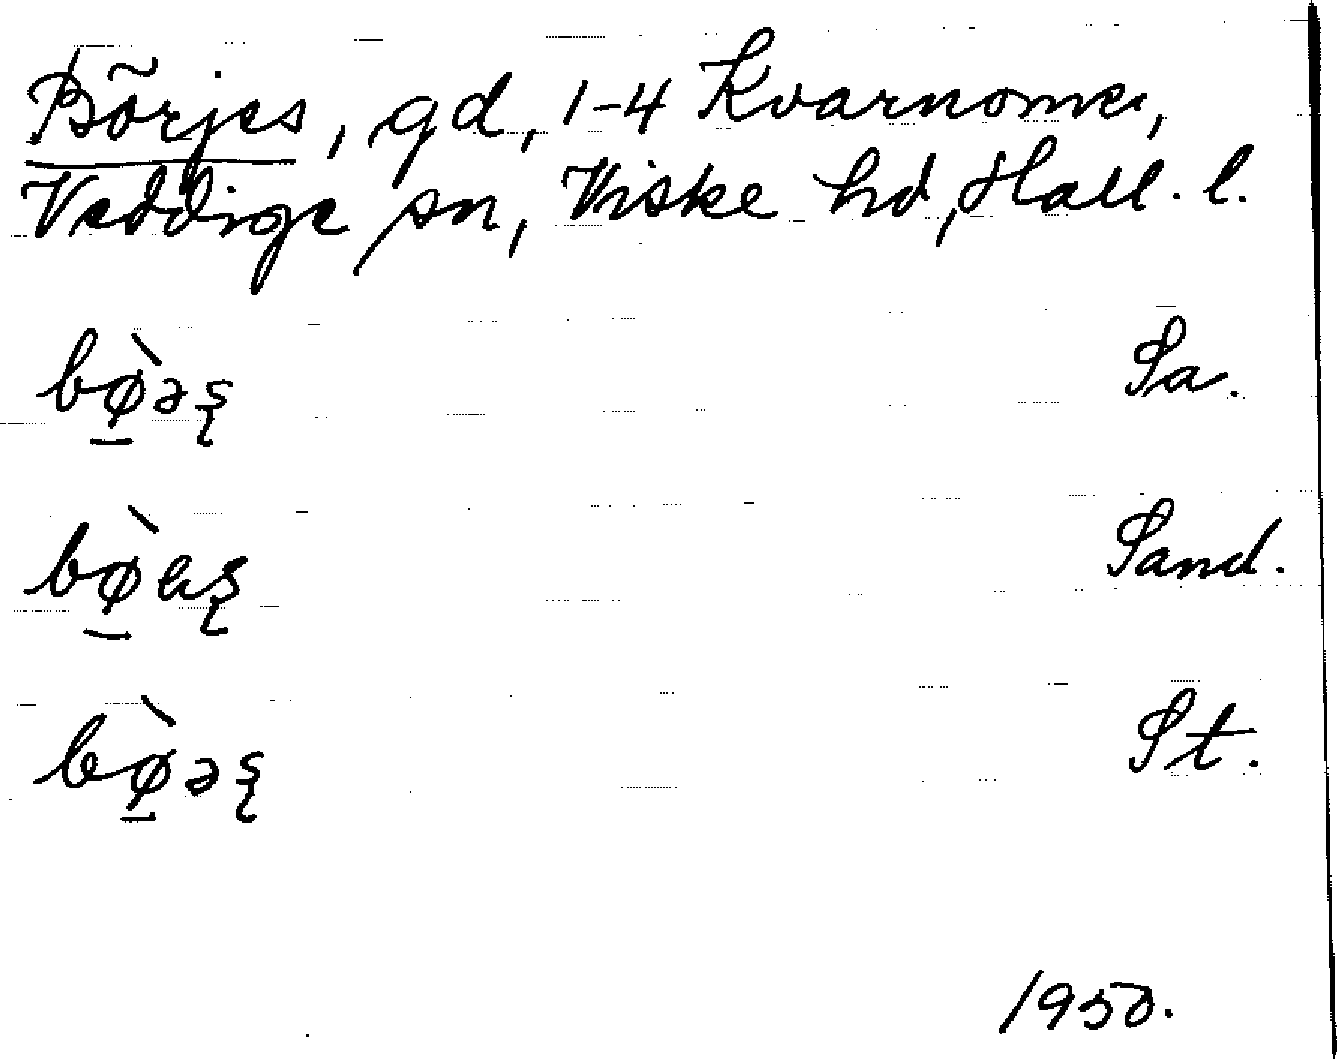 Börjes, gd, 1-4 Kvarnome,
Veddige sn, Viske hd, Hall. l.
bø̲̀əş Sa.
bø̲̀aş Sand.
bø̲̀əş St.
1950.